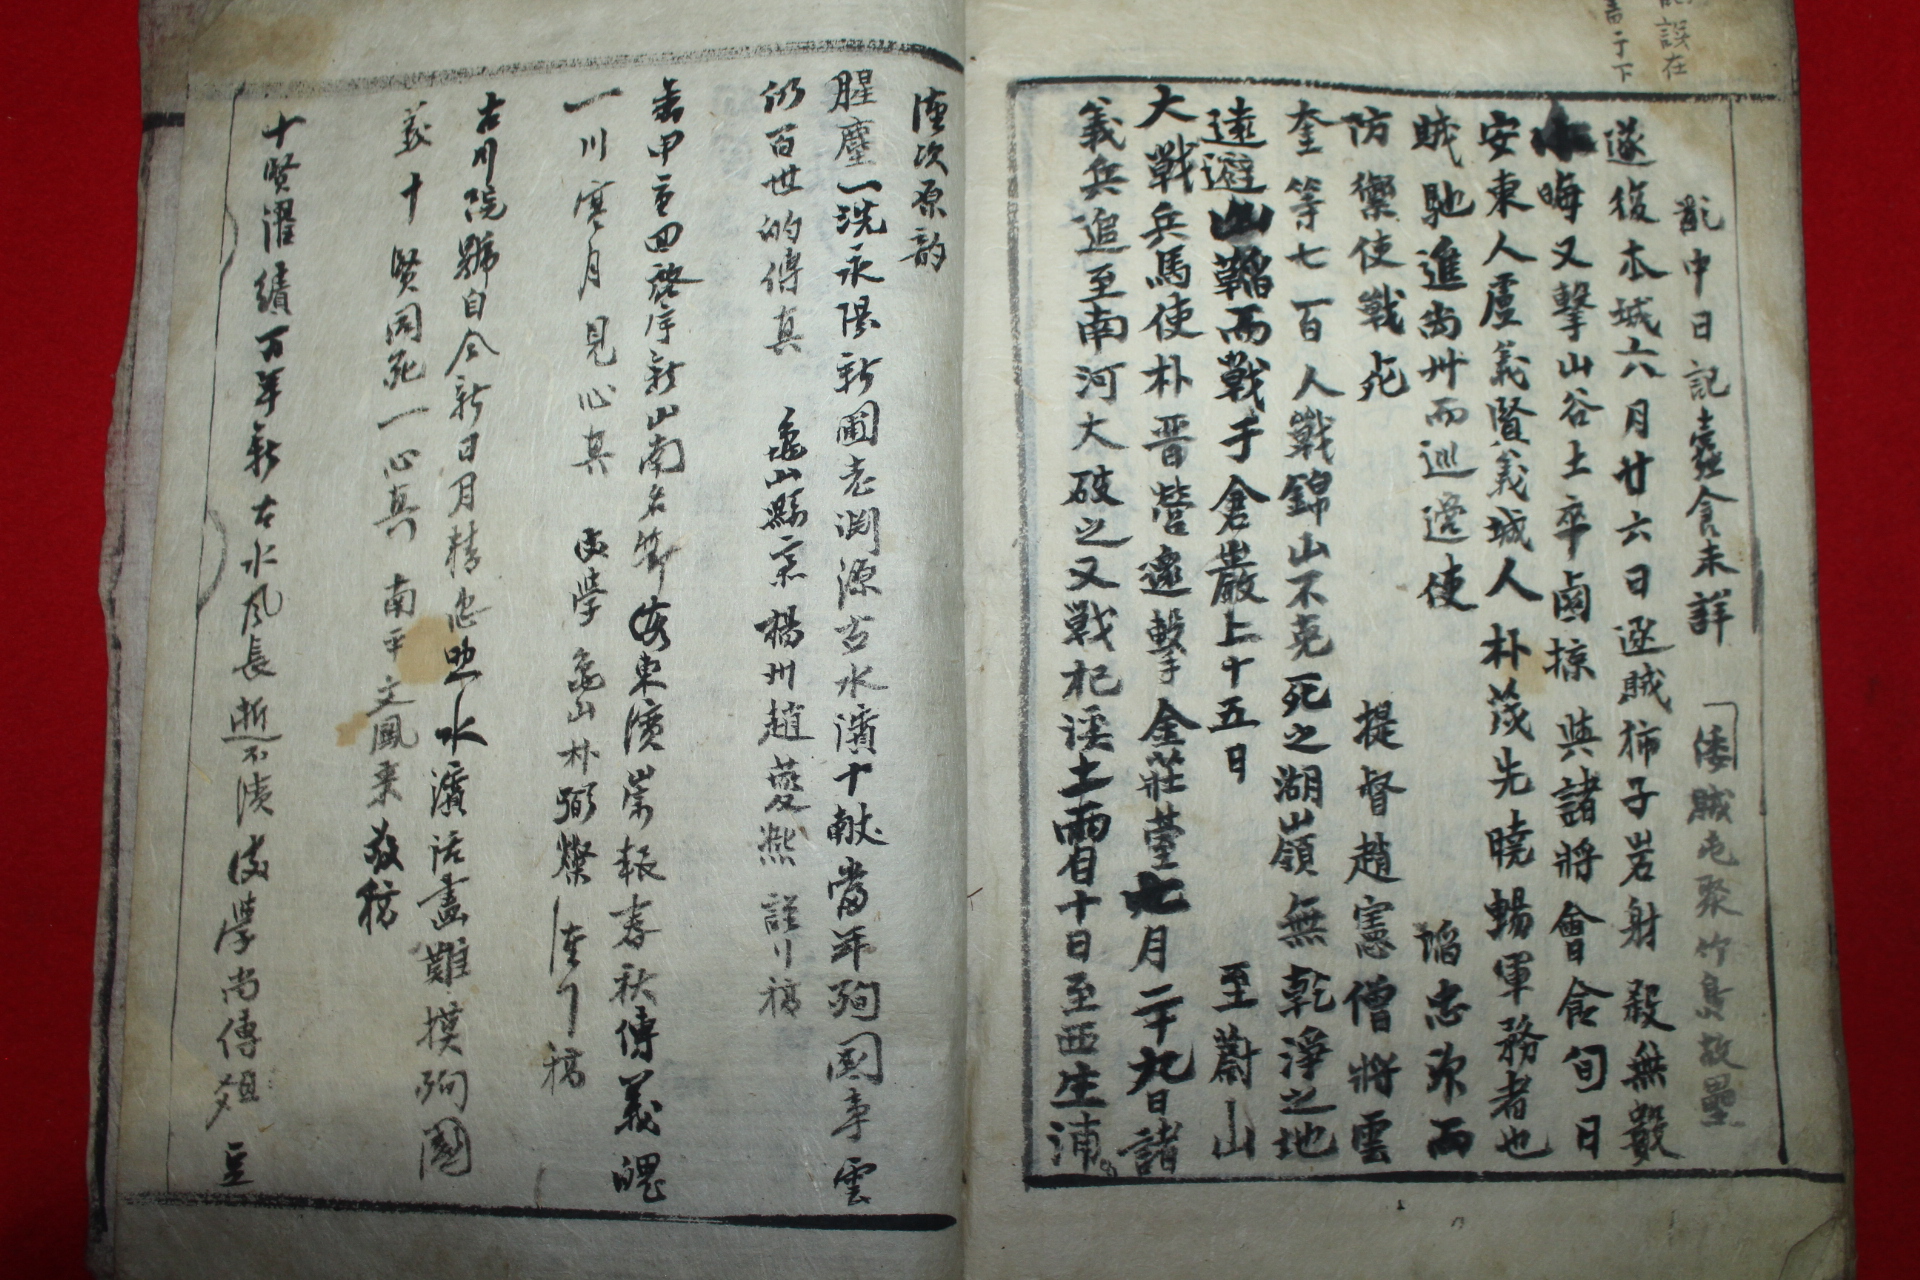 誤在
書于下
亂中日記 蠹食未詳 倭賊屯聚竹島故壘
遂復本城六月廿六日逐賊柿子岩射殺無數
小晦又擊山谷士卒鹵掠與諸將會食旬日
安東人盧義賢義城人朴茂先曉暢軍務者也
賊馳進尚州而巡邊使 諂忠次而
防禦使戰死 提督趙憲僧將雲
奎等七百人戰錦山不克死之湖嶺無乾淨之地
遠避山 而戰于倉巖上十五日 至蔚山
大戰兵馬使朴晋營邀擊金莊臺九月二十九日諸
義兵追至南河大破之又戰杞溪土雨自十日至西生浦
謹次原韵
腥塵一洗永陽新圃老淵源古水濱十獻當年殉國事雲
仍百世的傳真 龜山縣宗楊州趙夔熙謹稿
壬甲重回啓序新山南名節 東濱崇報春秋傳義魄
一川寒月見心真 後學龜山朴弼燦謹稿
古川院號自今新日月精忠照水濱活畫難摸殉國
義十賢同死一心真 南平文鳳來敬稿
十賢濯績万年新古水風長逝不濱後學尚傳俎豆